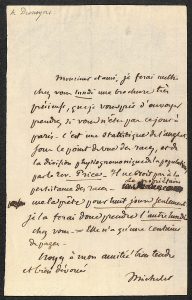 à Dumeynier
Monsieur et ami, je ferai mettre
chez vous lundi une brochure très
précieuse, que je vous prie d'envoyer
prendre, si vous n'êtes pas ce jour à
paris. C'est une statistique de l'anglet.
sous le point de vue des races, et de
la division physiognomonique de la population
par le rev. Price. Il ne croit pas à la
persistance des races.
me la prête pour huit jours seulement,
je la ferai donc prendre l'autre lundi
chez vous — Elle n'a qu'une centaine
de pages.
Croyez à mon amitié bien tendre
et bien dévouée
Michelet